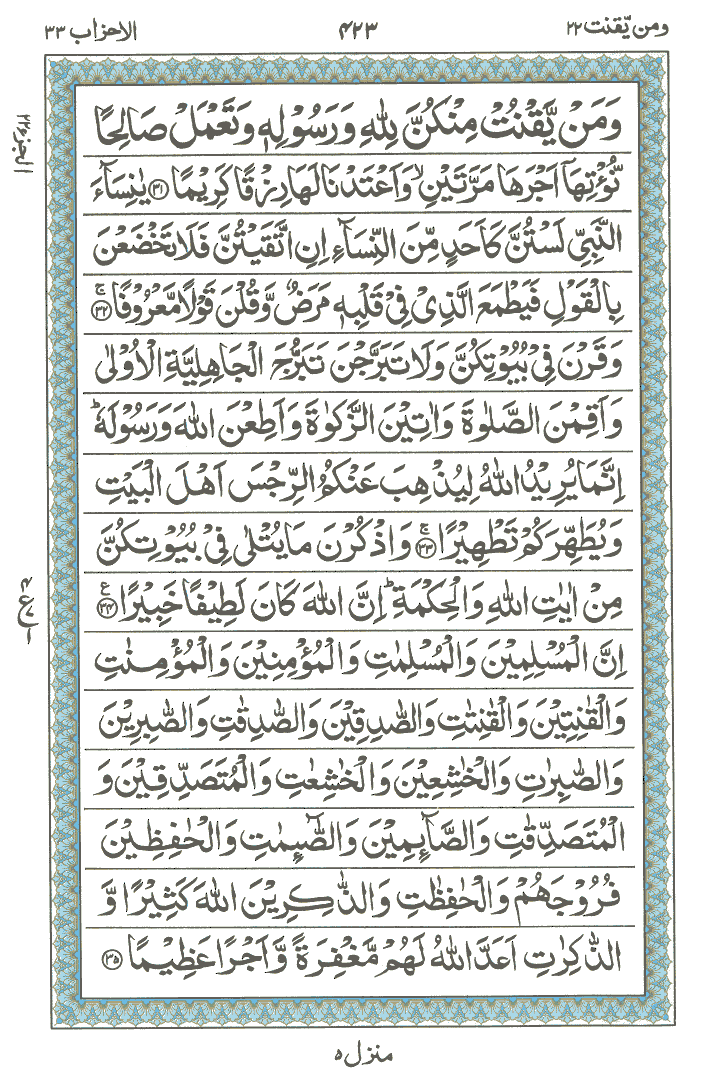 ومن يّقنت ٢٢
٤٢٣
الاحزاب ٣٣
الجزء ٢٢
وَمَنْ يَّقْنُتْ مِنْكُنَّ لِلّٰهِ وَرَسُوْلِهٖ وَتَعْمَلْ صَالِحًا
نُّؤْتِهَآ اَجْرَهَا مَرَّتَيْنِ ۙ وَاَعْتَدْنَا لَهَا رِزْقًا كَرِيْمًا ﴿٣١﴾ يٰنِسَآءَ
النَّبِيِّ لَسْتُنَّ كَاَحَدٍ مِّنَ النِّسَآءِ اِنِ اتَّقَيْتُنَّ فَلَا تَخْضَعْنَ
بِالْقَوْلِ فَيَطْمَعَ الَّذِيْ فِيْ قَلْبِهٖ مَرَضٌ وَّقُلْنَ قَوْلًا مَّعْرُوْفًا ۚ ﴿٣٢﴾
وَقَرْنَ فِيْ بُيُوْتِكُنَّ وَلَا تَبَرَّجْنَ تَبَرُّجَ الْجَاهِلِيَّةِ الْاُوْلٰى
وَاَقِمْنَ الصَّلٰوةَ وَاٰتِيْنَ الزَّكٰوةَ وَاَطِعْنَ اللّٰهَ وَرَسُوْلَهٗ ؕ
اِنَّمَا يُرِيْدُ اللّٰهُ لِيُذْهِبَ عَنْكُمُ الرِّجْسَ اَهْلَ الْبَيْتِ
وَيُطَهِّرَكُمْ تَطْهِيْرًا ۚ ﴿٣٣﴾ وَاذْكُرْنَ مَا يُتْلٰى فِيْ بُيُوْتِكُنَّ
مِنْ اٰيٰتِ اللّٰهِ وَالْحِكْمَةِ ؕ اِنَّ اللّٰهَ كَانَ لَطِيْفًا خَبِيْرًا ﴿٣٤﴾ ع
٤
ع
١
اِنَّ الْمُسْلِمِيْنَ وَالْمُسْلِمٰتِ وَالْمُؤْمِنِيْنَ وَالْمُؤْمِنٰتِ
وَالْقٰنِتِيْنَ وَالْقٰنِتٰتِ وَالصّٰدِقِيْنَ وَالصّٰدِقٰتِ وَالصّٰبِرِيْنَ
وَالصّٰبِرٰتِ وَالْخٰشِعِيْنَ وَالْخٰشِعٰتِ وَالْمُتَصَدِّقِيْنَ وَ
الْمُتَصَدِّقٰتِ وَالصَّآئِمِيْنَ وَالصّٰٓئِمٰتِ وَالْحٰفِظِيْنَ
فُرُوْجَهُمْ وَالْحٰفِظٰتِ وَالذّٰكِرِيْنَ اللّٰهَ كَثِيْرًا وَّ
الذّٰكِرٰتِ اَعَدَّ اللّٰهُ لَهُمْ مَّغْفِرَةً وَّاَجْرًا عَظِيْمًا ﴿٣٥﴾
منزل ٥